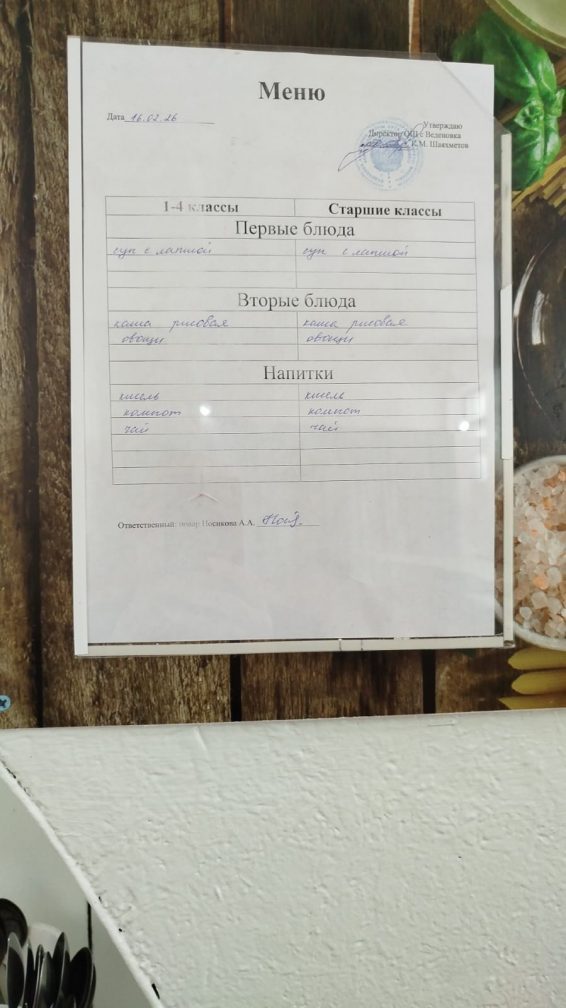 Меню
Дата 16.02.26
Утверждаю
Директор ОШ с Веденовка
К.М. Шаяхметов
1-4 классы Старшие классы
Первые блюда
суп с лапшой суп с лапшой
Вторые блюда
каша рисовая каша рисовая
овощи овощи
Напитки
кисель кисель
компот компот
чай чай
Ответственный: повар Носикова А.А.